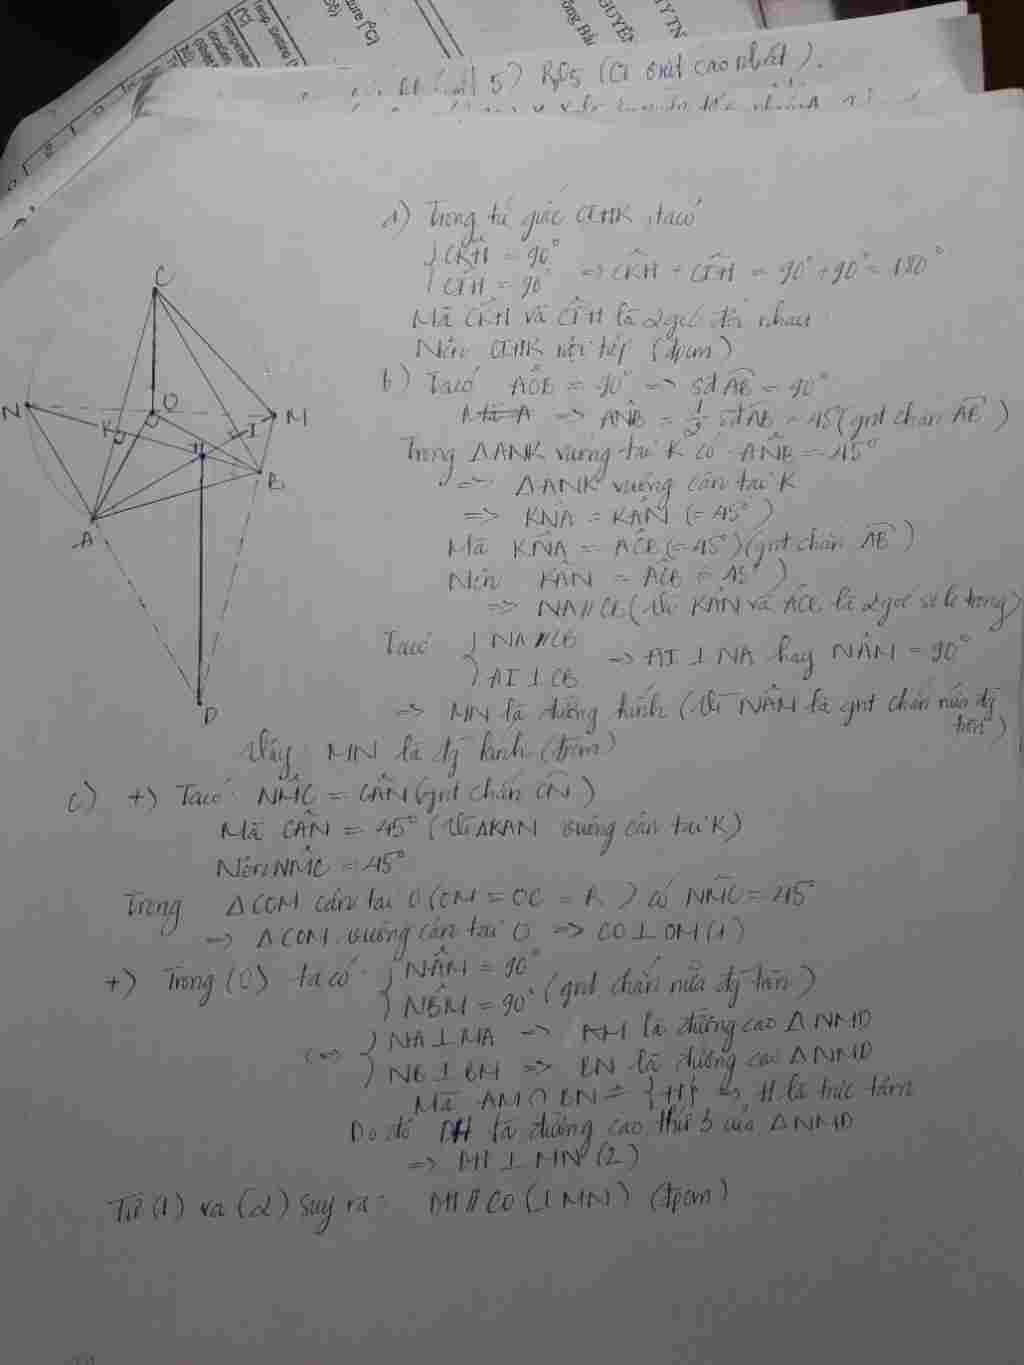 5) P₂O₅ (Cl oxit cao nhất).
a) Trong tứ giác CIHK, ta có
{ CK̂H = 90°
{ CÎH = 90° => CK̂H + CÎH = 90° + 90° = 180°
Mà CK̂H và CÎH là 2 góc đối nhau
Nên CIHK nội tiếp (đpcm)
b) Ta có AÔB = 90° => sđ AB = 90°
=> AN̂B = 1/2 sđ AB = 45 (gnt chắn AB)
Trong ΔANK vuông tại K có AN̂B = 45°
=> ΔANK vuông cân tại K
=> KNA = KÂN (= 45°)
Mà KN̂A = AĈB (= 45°) (gnt chắn AB)
Nên KÂN = AĈB = 45°)
=> NA // CB (Vì KÂN và AĈB là 2 góc so le trong)
Ta có { NA // CB
{ AI ⊥ CB => AI ⊥ NA hay NÂM = 90°
=> MN là đường kính (Vì NÂM là gnt chắn nửa đg tròn)
Vậy MN là đg kính (đpcm)
c) +) Ta có NM̂C = CÂN (gnt chắn CN)
Mà CÂN = 45° (Vì ΔKAN vuông cân tại K)
Nên NMC = 45°
Trong ΔCOM cân tại O (OM = OC = R) có NMC = 45°
=> ΔCOM vuông cân tại O => CO ⊥ OM (1)
+) Trong (O) ta có { NÂM = 90°
{ NB̂M = 90° (gnt chắn nửa đg tròn)
<=> { NA ⊥ MA => AM là đường cao ΔNMD
{ NB ⊥ BM => BN là đường cao ΔNMD
Mà AM ∩ BN = {H} => H là trực tâm
Do đó DH là đường cao thứ 3 của ΔNMD
=> DH ⊥ MN (2)
Từ (1) và (2) suy ra: DH // CO (⊥ MN) (đpcm)
C
N
O
M
K
H
I
B
A
D